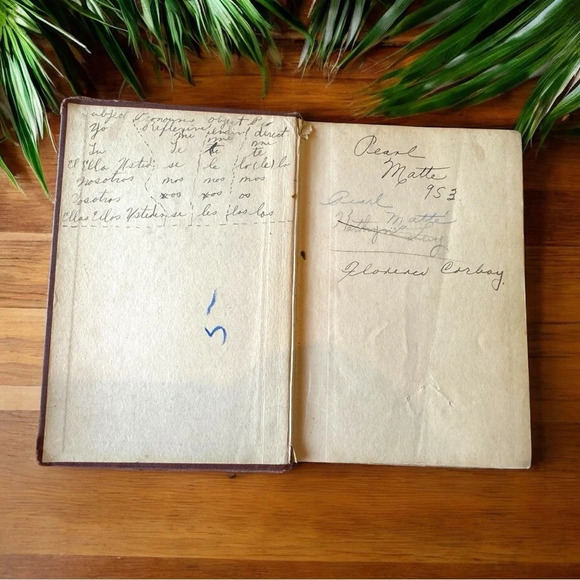 Subject Pronouns object
Yo Reflexive direct
me me me
Tu Te te te
El Ella Usted se le lo (le) la
nosotros nos nos nos
Vosotros xos xos os
Ellas Ellos Ustedes se les los las
5-
Pearl
Matte
953
Pearl
Matte
Kathryn
Florence Corboy